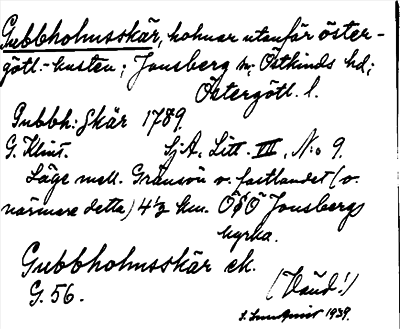 Gubbholmsskär, holmar utanför öster-
götl.-kusten; Jonsberg sn, Östkinds hd;
Östergötl. l.
Gubbh: skär 1789.
G. Klint. SjA. Litt. III, N:o 9.
Läge mell. Gränsön o. fastlandet (o.
närmare detta) 4½ km. OSO Jonsbergs
kyrka.
Gubbholmsskär ek.
G. 56. (Vänd!)
1939.